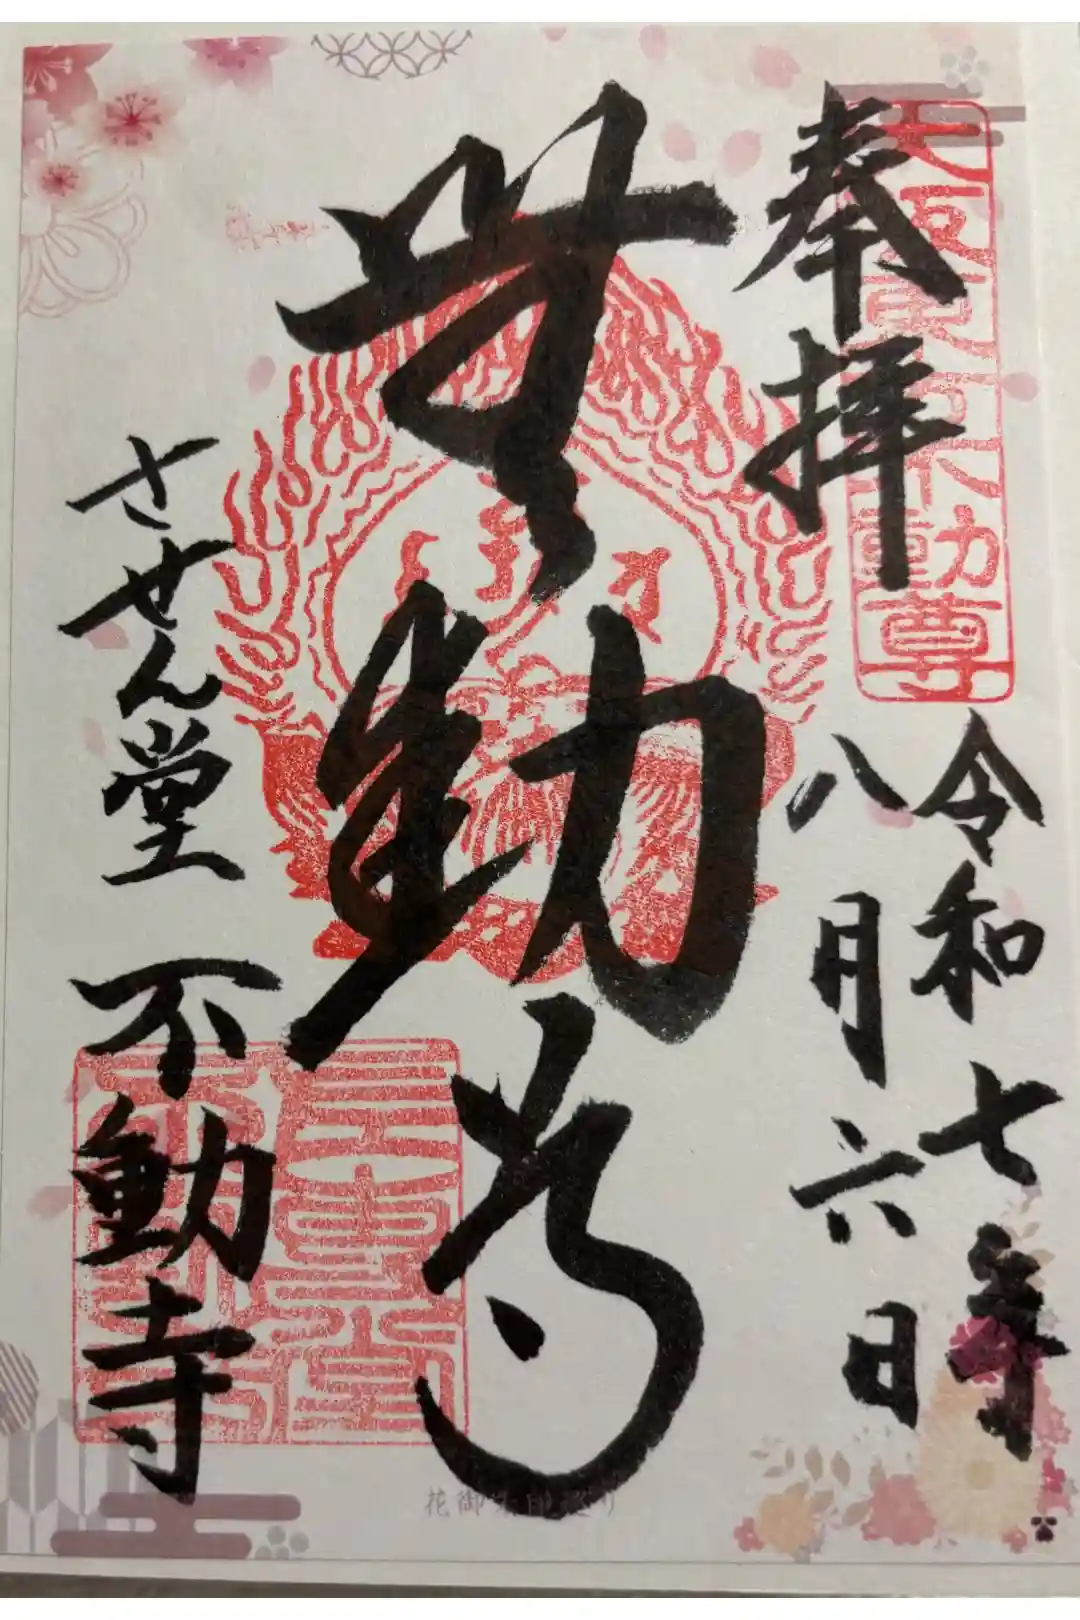 奉拝
令和七年
八月六日
無動尊
させん堂 不動寺
不動尊
花御朱印巡り